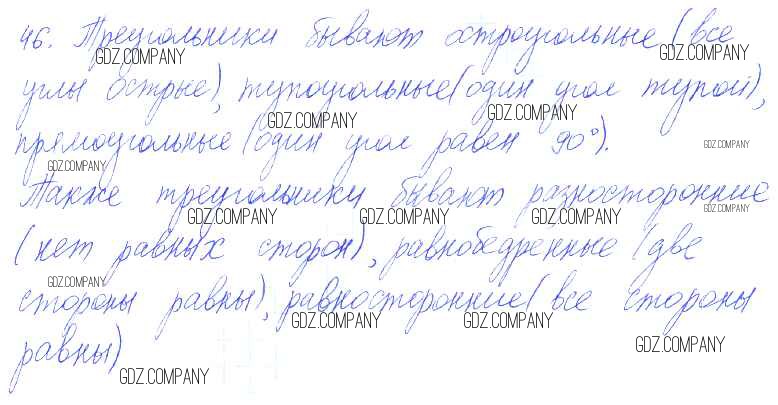 46. Треугольники бывают остроугольные (все
GDZ.COMPANY GDZ.COMPANY
углы острые), тупоугольные (один угол тупой),
GDZ.COMPANY GDZ.COMPANY
прямоугольные (один угол равен 90°).
GDZ.COMPANY GDZ.COMPANY
Также треугольники бывают разносторонние
GDZ.COMPANY GDZ.COMPANY GDZ.COMPANY GDZ.COMPANY
(нет равных сторон), равнобедренные (две
GDZ.COMPANY
стороны равны), равносторонние (все стороны
GDZ.COMPANY GDZ.COMPANY
равны)
GDZ.COMPANY GDZ.COMPANY